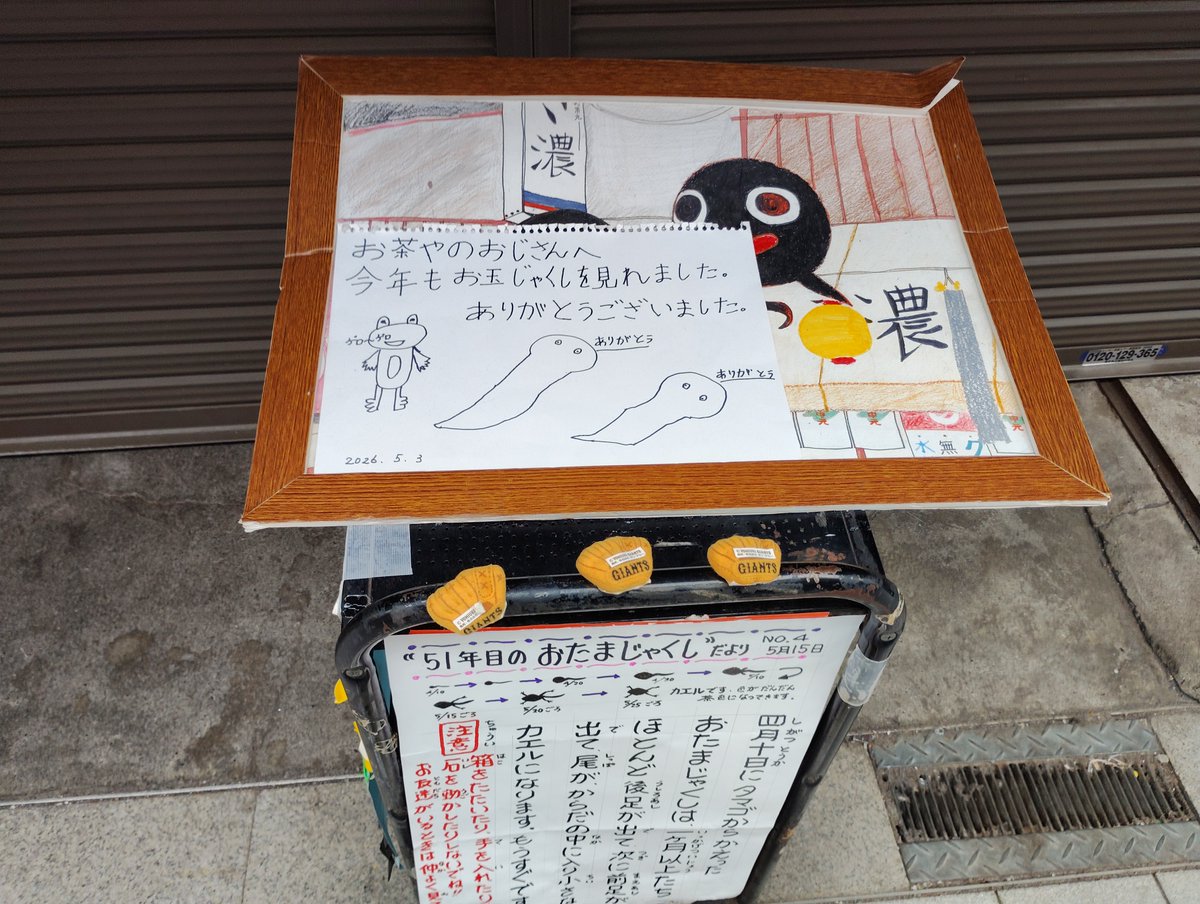 濃
お茶やのおじさんへ
今年もお玉じゃくしを見れました。
ありがとうございました。
ゲロゲロ
ありがとう
ありがとう
2026.5.3
濃
水無
0120-129-365
GIANTS
GIANTS
GIANTS
“51年目の おたまじゃくし”だより NO.4
5月15日
4/10
4/20
4/30
5/10
5/15ごろ
5/20ごろ
5/25ごろ
カエルです。色がだんだん
茶色になってきます。
四月十日にタマゴからかえった
おたまじゃくしは、一ヶ月以上たち
ほとんど後足が出て次に前足が
出て、尾がからだの中に入り小さな
カエルになります。もうすぐです
注意
箱をたたいたり、手を入れたり
石を動かしたりしないでね!!
お友達がいるときは仲よく見